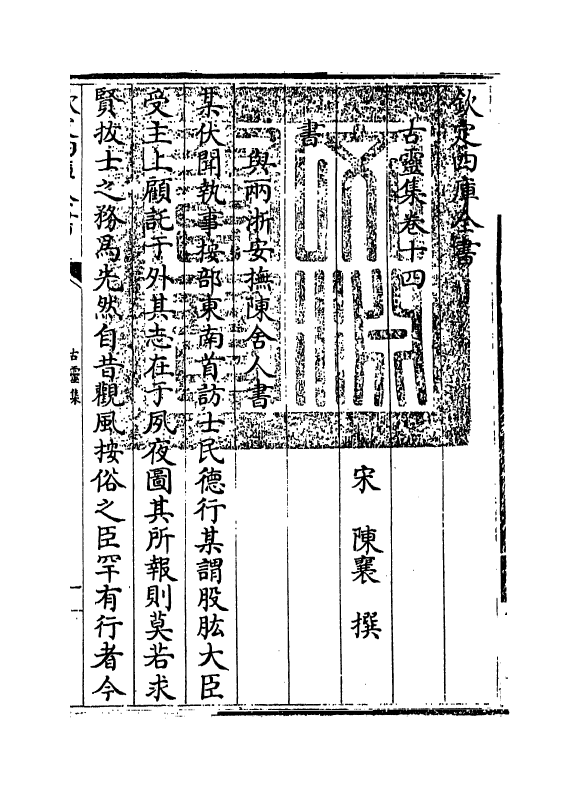 欽定四庫全書
古靈集卷十四
宋 陳襄 撰
書
與兩浙安撫陳舍人書
某伏聞執事按部東南首訪士民德行某謂股肱大臣
受主上顧託于外其志在于夙夜圖其所報則莫若求
賢拔士之務為先然自昔觀風按俗之臣罕有行者今
古靈集
一